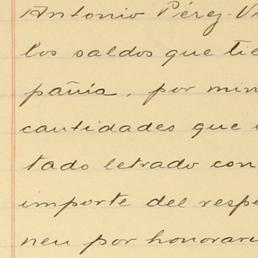 Antonio Pérez. V
los saldos que tie
pañía, por min
cantidades que
tado letrado con
importe del respe
neu por honorari